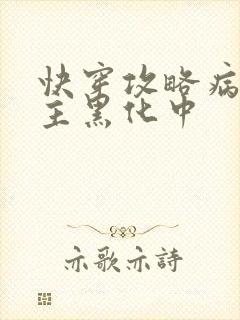 快穿攻略病
主黑化中
亦歌亦詩